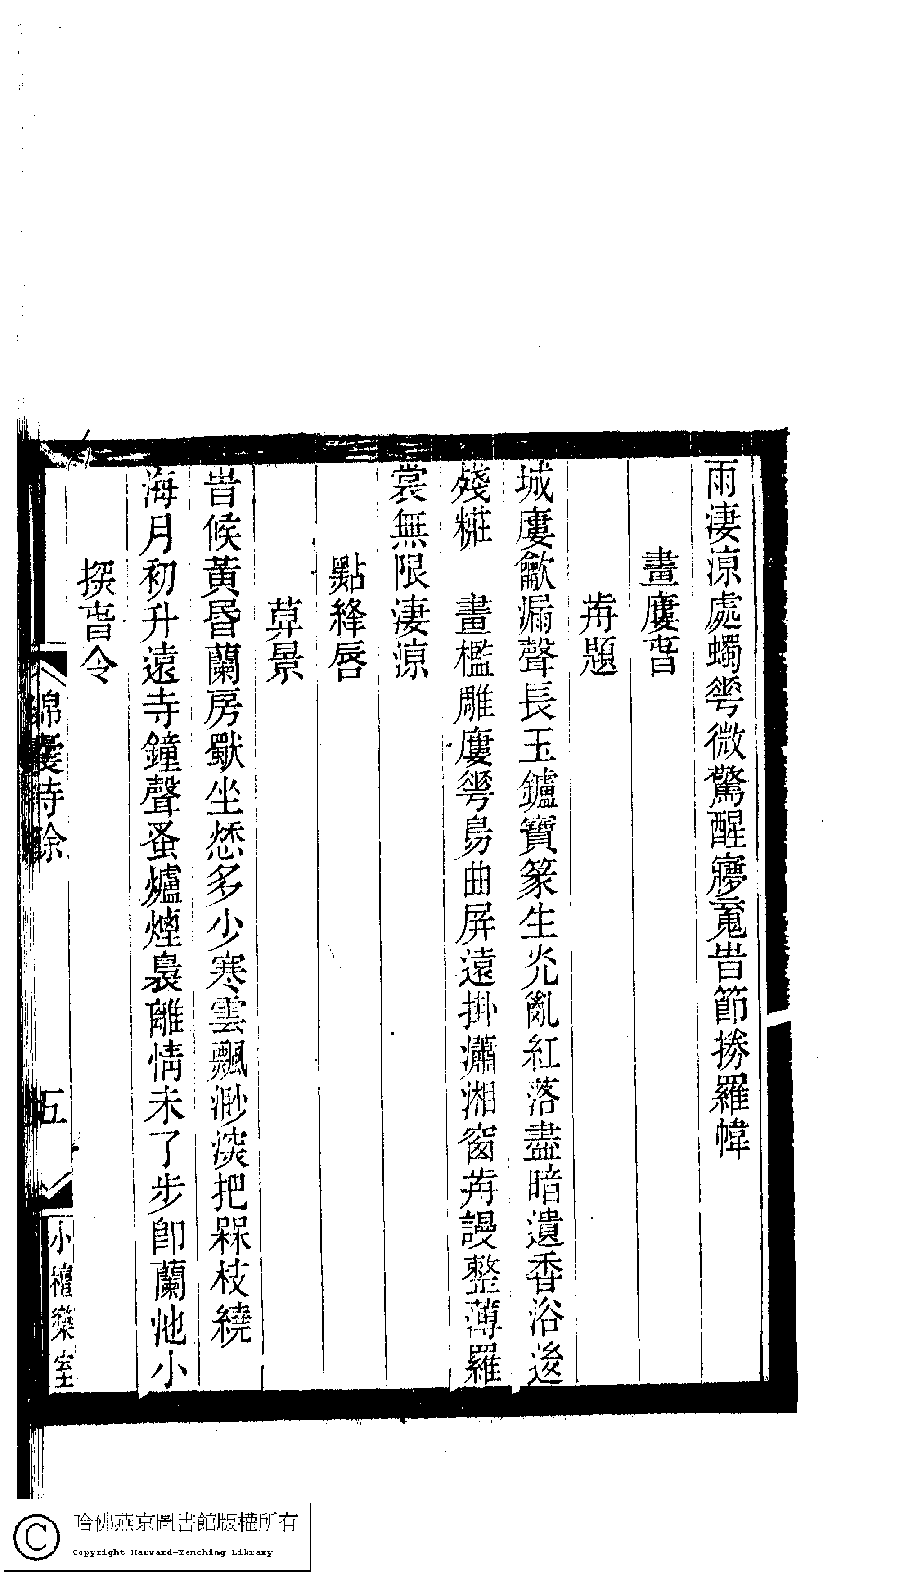 雨淒涼處蠋蕚微驚醒寱䰟旹節搒羅幃
畫廔旾
歬題
城廔龡漏聲長玉鑪寶篆生炗亂紅落盡暗遺香浴逡
殘糚　畫檻雕廔蕚昜曲屏遠掛瀟湘窗歬謾整薄羅
裳無限淒涼
點絳唇
莫景
旹候黃昏蘭房獸坐愁多少寒雲飄渺淡把槑枝繞
海月初升遠寺鐘聲蚤爐煙裊離情未了步卽蘭池小
探旾令
錦囊詩餘
五
小檀欒室
哈佛燕京圖書館版權所有
Copyright Harvard-Yenching Library